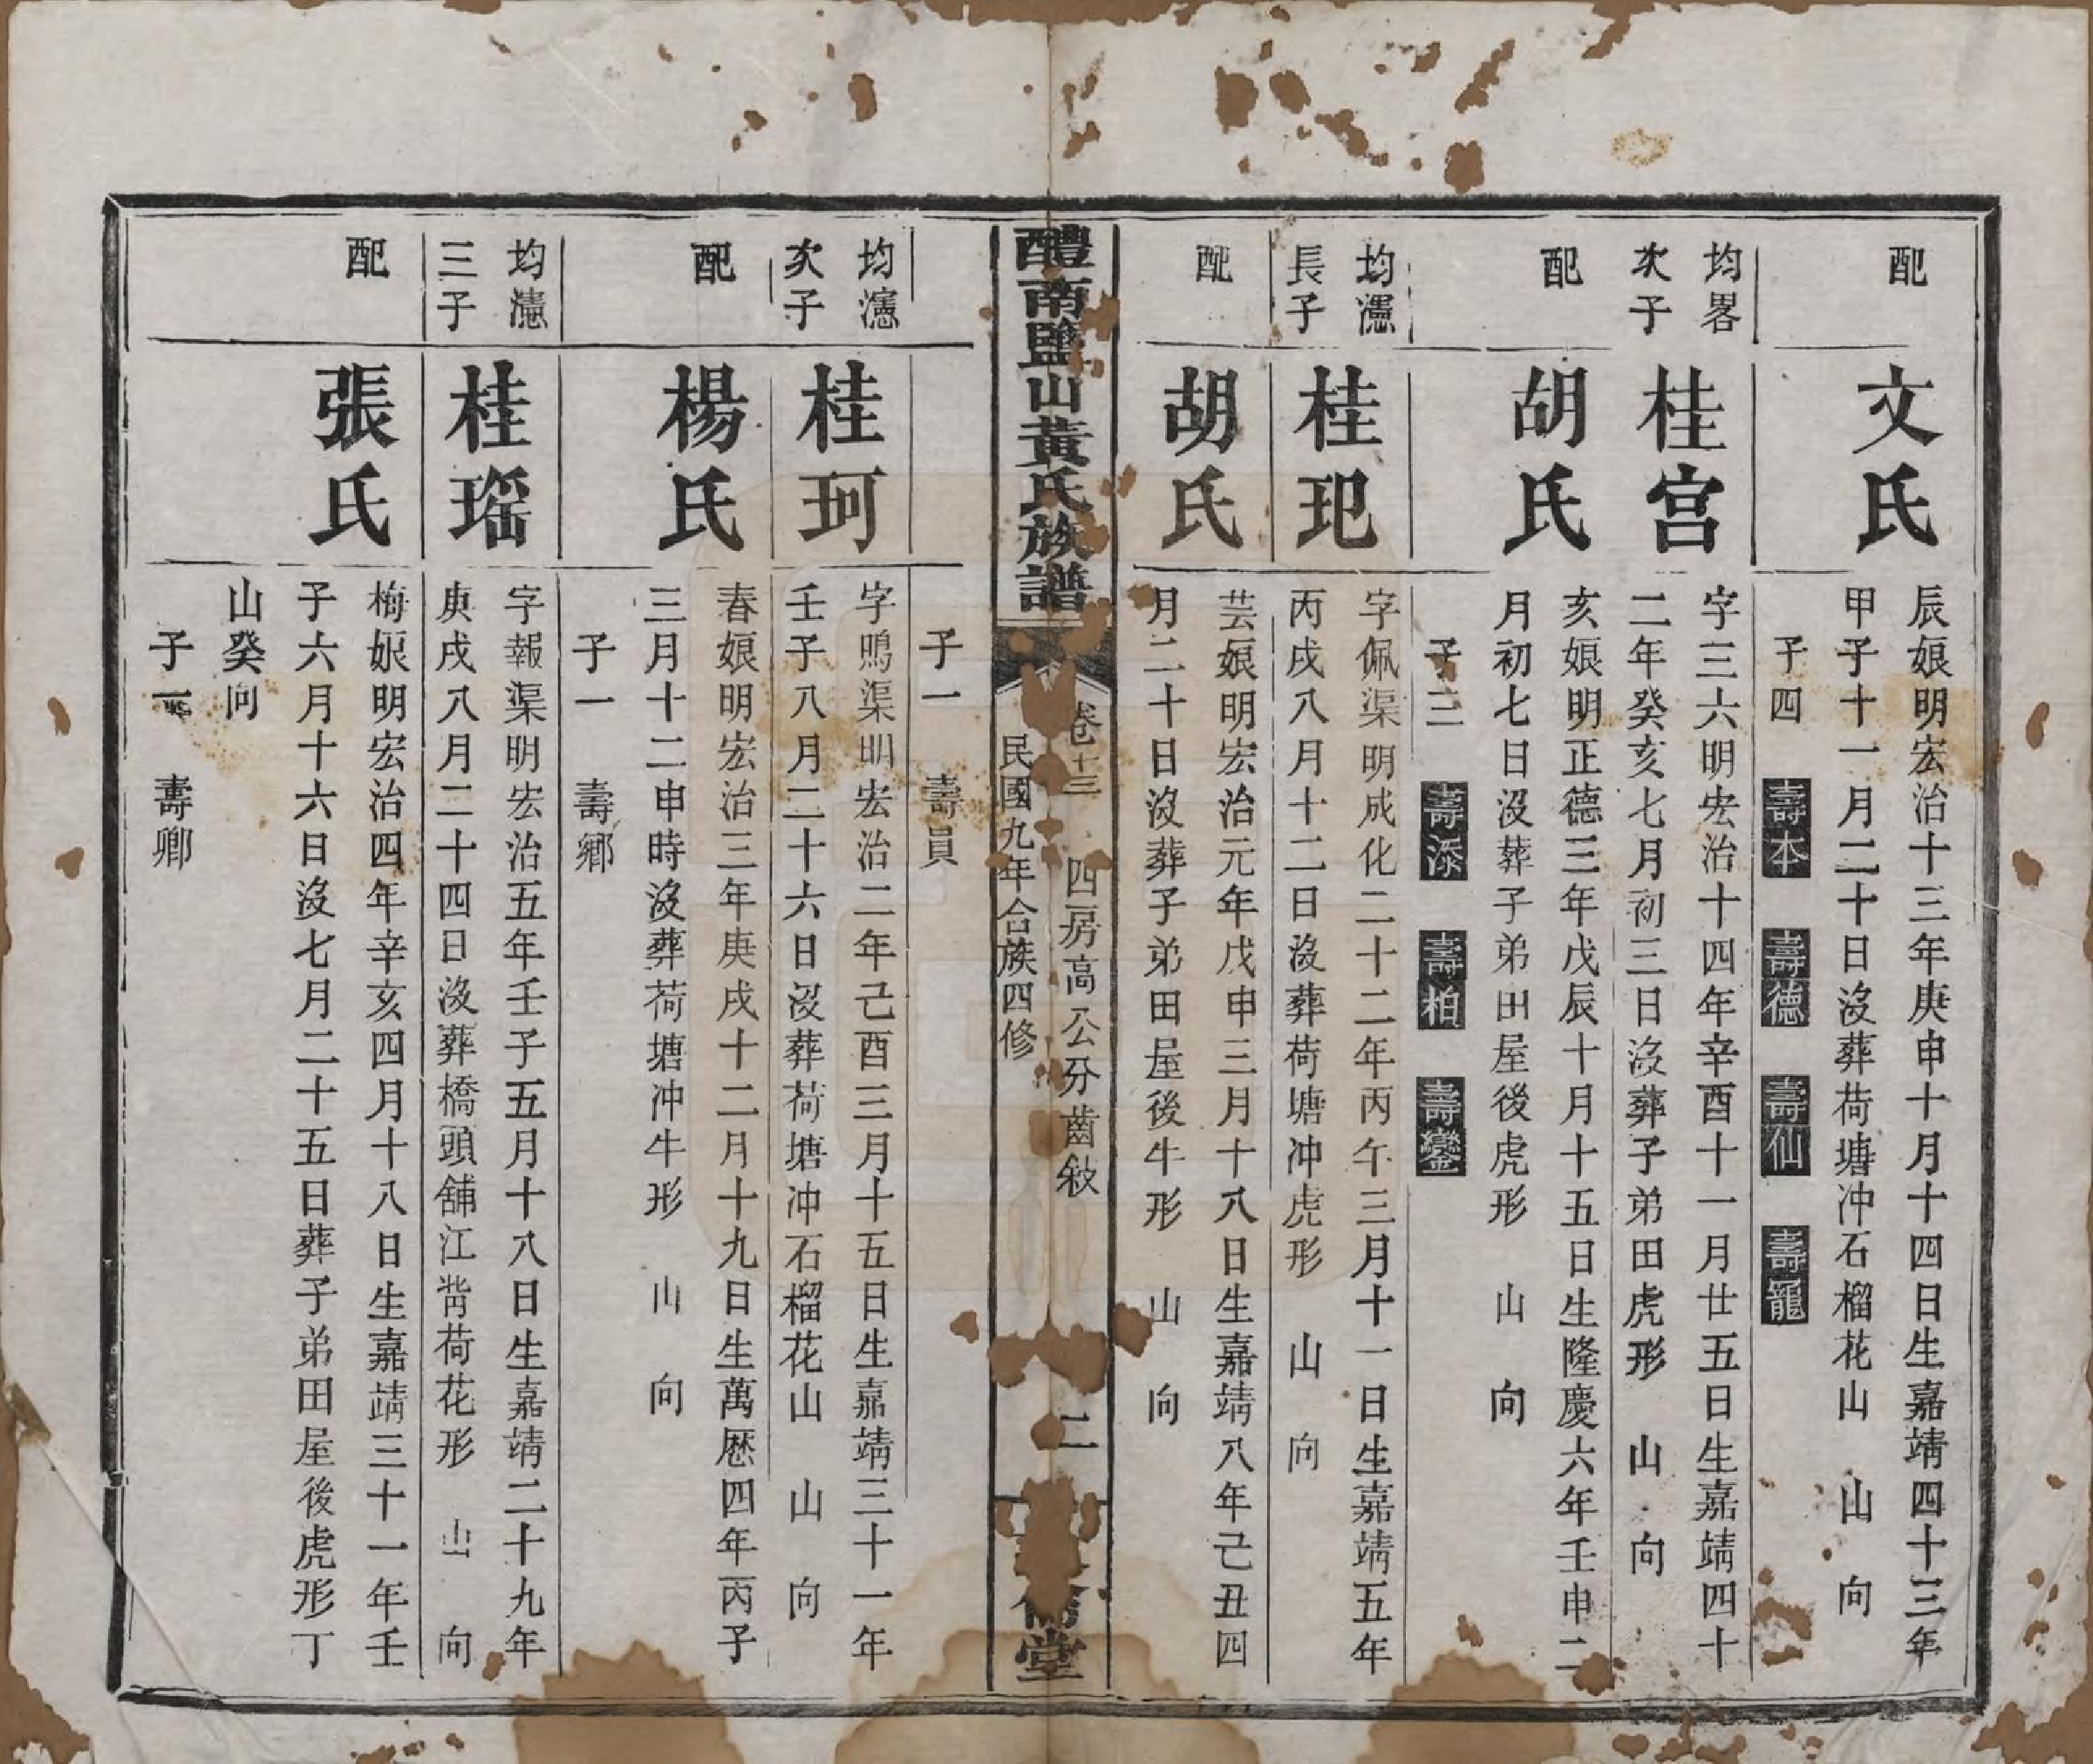 配
文氏
辰娘明宏治十三年庚申十月十四日生嘉靖四十三年
甲子十一月二十日沒葬荷塘冲石榴花山　山　向
子四　壽本　壽德　壽仙　壽龍
均畧
次子
桂宫
字三六明宏治十四年辛酉十一月廿五日生嘉靖四十
二年癸亥七月初三日沒葬子弟田虎形　山　向
配
胡氏
亥娘明正德三年戊辰十月十五日生隆慶六年壬申二
月初七日沒葬子弟田屋後虎形　山　向
子三　壽添　壽柏　壽鑾
均瀗
長子
桂玘
字佩渠明成化二十二年丙午三月十一日生嘉靖五年
丙戌八月十二日沒葬荷塘冲虎形　山　向
配
胡氏
芸娘明宏治元年戊申三月十八日生嘉靖八年己丑四
月二十日沒葬子弟田屋後牛形　山　向
醴南鹽山黃氏族譜
卷十三　四房高公分齒敘
民國九年合族四修
二
倫堂
子一　壽員
均瀗
次子
桂珂
字鳴渠明宏治二年己酉三月十五日生嘉靖三十一年
壬子八月二十六日沒葬荷塘冲石榴花山　山　向
配
楊氏
春娘明宏治三年庚戌十二月十九日生萬歷四年丙子
三月十二申時沒葬荷塘冲牛形　山　向
子一　壽鄉
均瀗
三子
桂瑶
字報渠明宏治五年壬子五月十八日生嘉靖二十九年
庚戌八月二十四日沒葬橋頭舖江背荷花形　山　向
配
張氏
梅娘明宏治四年辛亥四月十八日生嘉靖三十一年壬
子六月十六日沒七月二十五日葬子弟田屋後虎形丁
山癸向
子一　壽卿